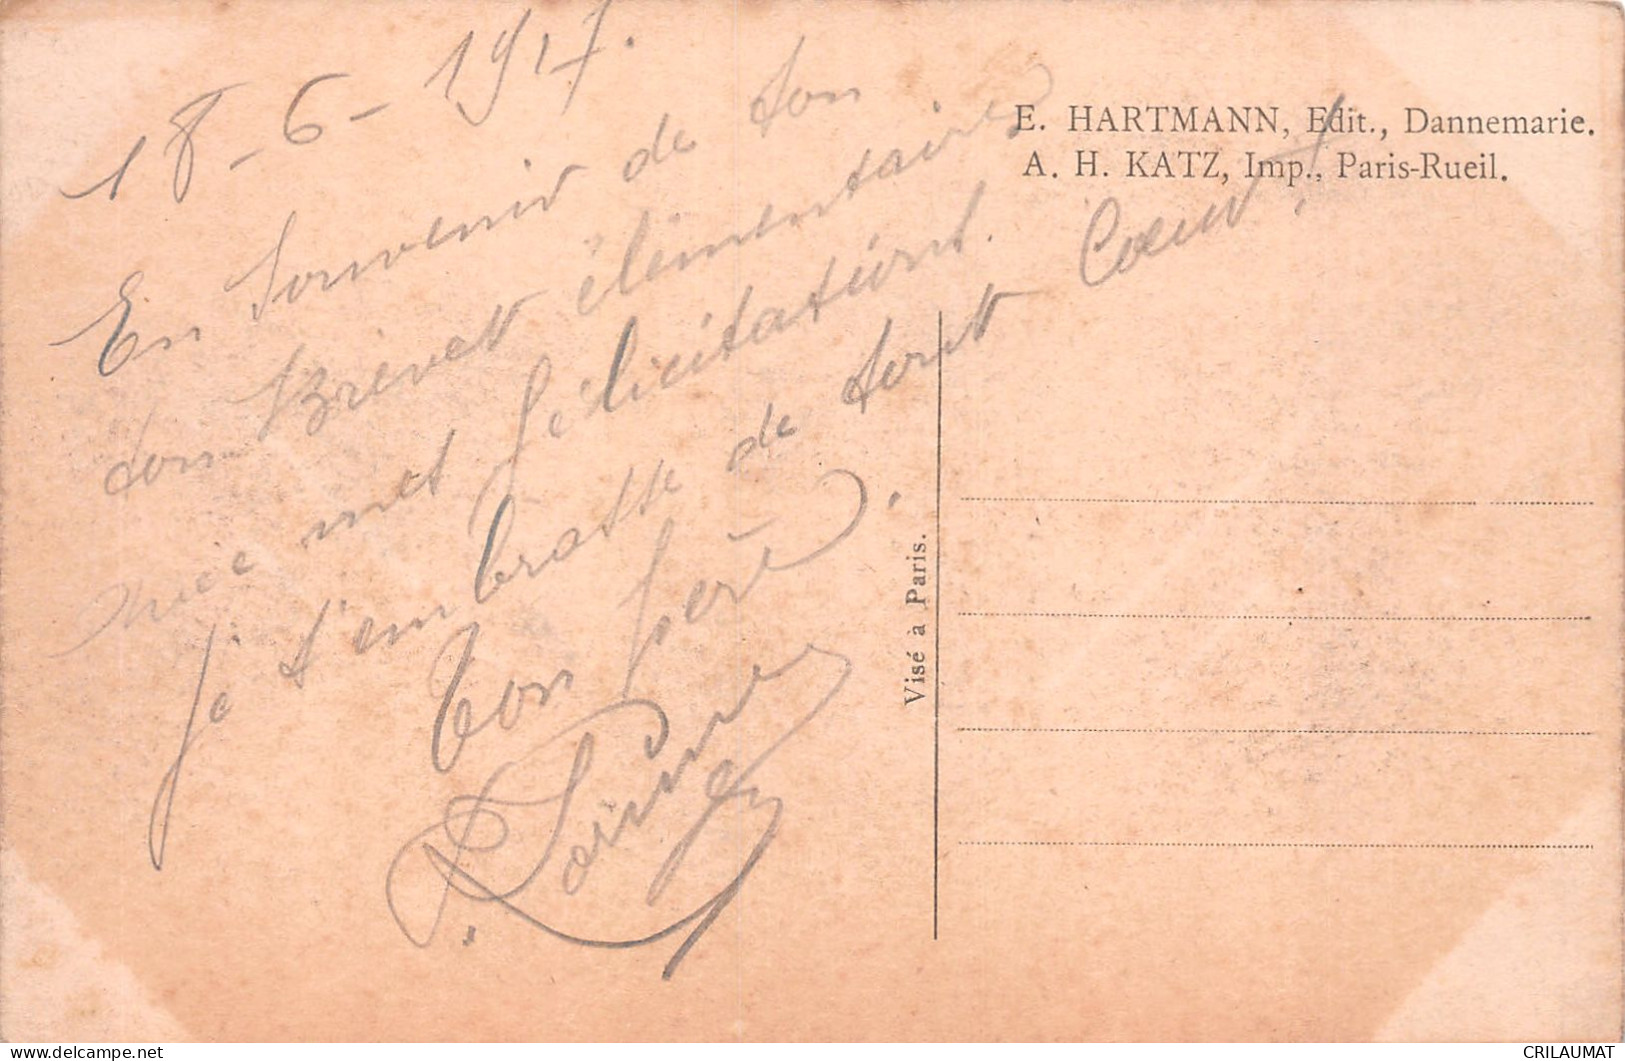 18-6-1917.
En Souvenir de ton
ton Brevet élémentaire
mes félicitations.
Je t'embrasse de tout Coeur !
Ton père.
E. HARTMANN, Edit., Dannemarie.
A. H. KATZ, Imp., Paris-Rueil.
Visé à Paris.
CRILAUMAT